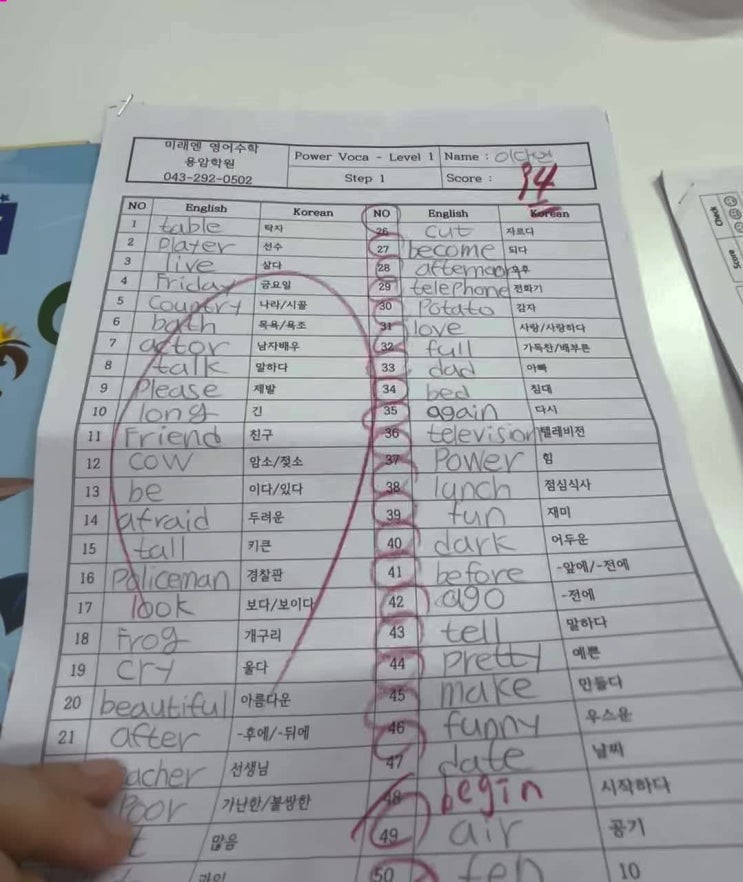 미래엔 영어수학
용암학원
043-292-0502
Power Voca - Level 1 Name :
Step 1 Score : 94
NO English Korean NO English Korean
1 table 탁자 26 cut 자르다
2 Player 선수 27 become 되다
3 live 살다 28 afternoon 오후
4 Friday 금요일 29 telephone 전화기
5 Country 나라/시골 30 Potato 감자
6 bath 목욕/욕조 31 love 사랑/사랑하다
7 actor 남자배우 32 full 가득찬/배부른
8 talk 말하다 33 dad 아빠
9 Please 제발 34 bed 침대
10 long 긴 35 again 다시
11 Friend 친구 36 television 텔레비전
12 cow 암소/젖소 37 Power 힘
13 be 이다/있다 38 lunch 점심식사
14 afraid 두려운 39 fun 재미
15 tall 키큰 40 dark 어두운
16 Policeman 경찰관 41 before -앞에/-전에
17 look 보다/보이다 42 ago -전에
18 Frog 개구리 43 tell 말하다
19 cry 울다 44 pretty 예쁜
20 beautiful 아름다운 45 make 만들다
21 after -후에/-뒤에 46 funny 우스운
acher 선생님 47 date 날짜
Poor 가난한/불쌍한 48 begin 시작하다
t 많음 49 air 공기
50 ten 10
Check
Score